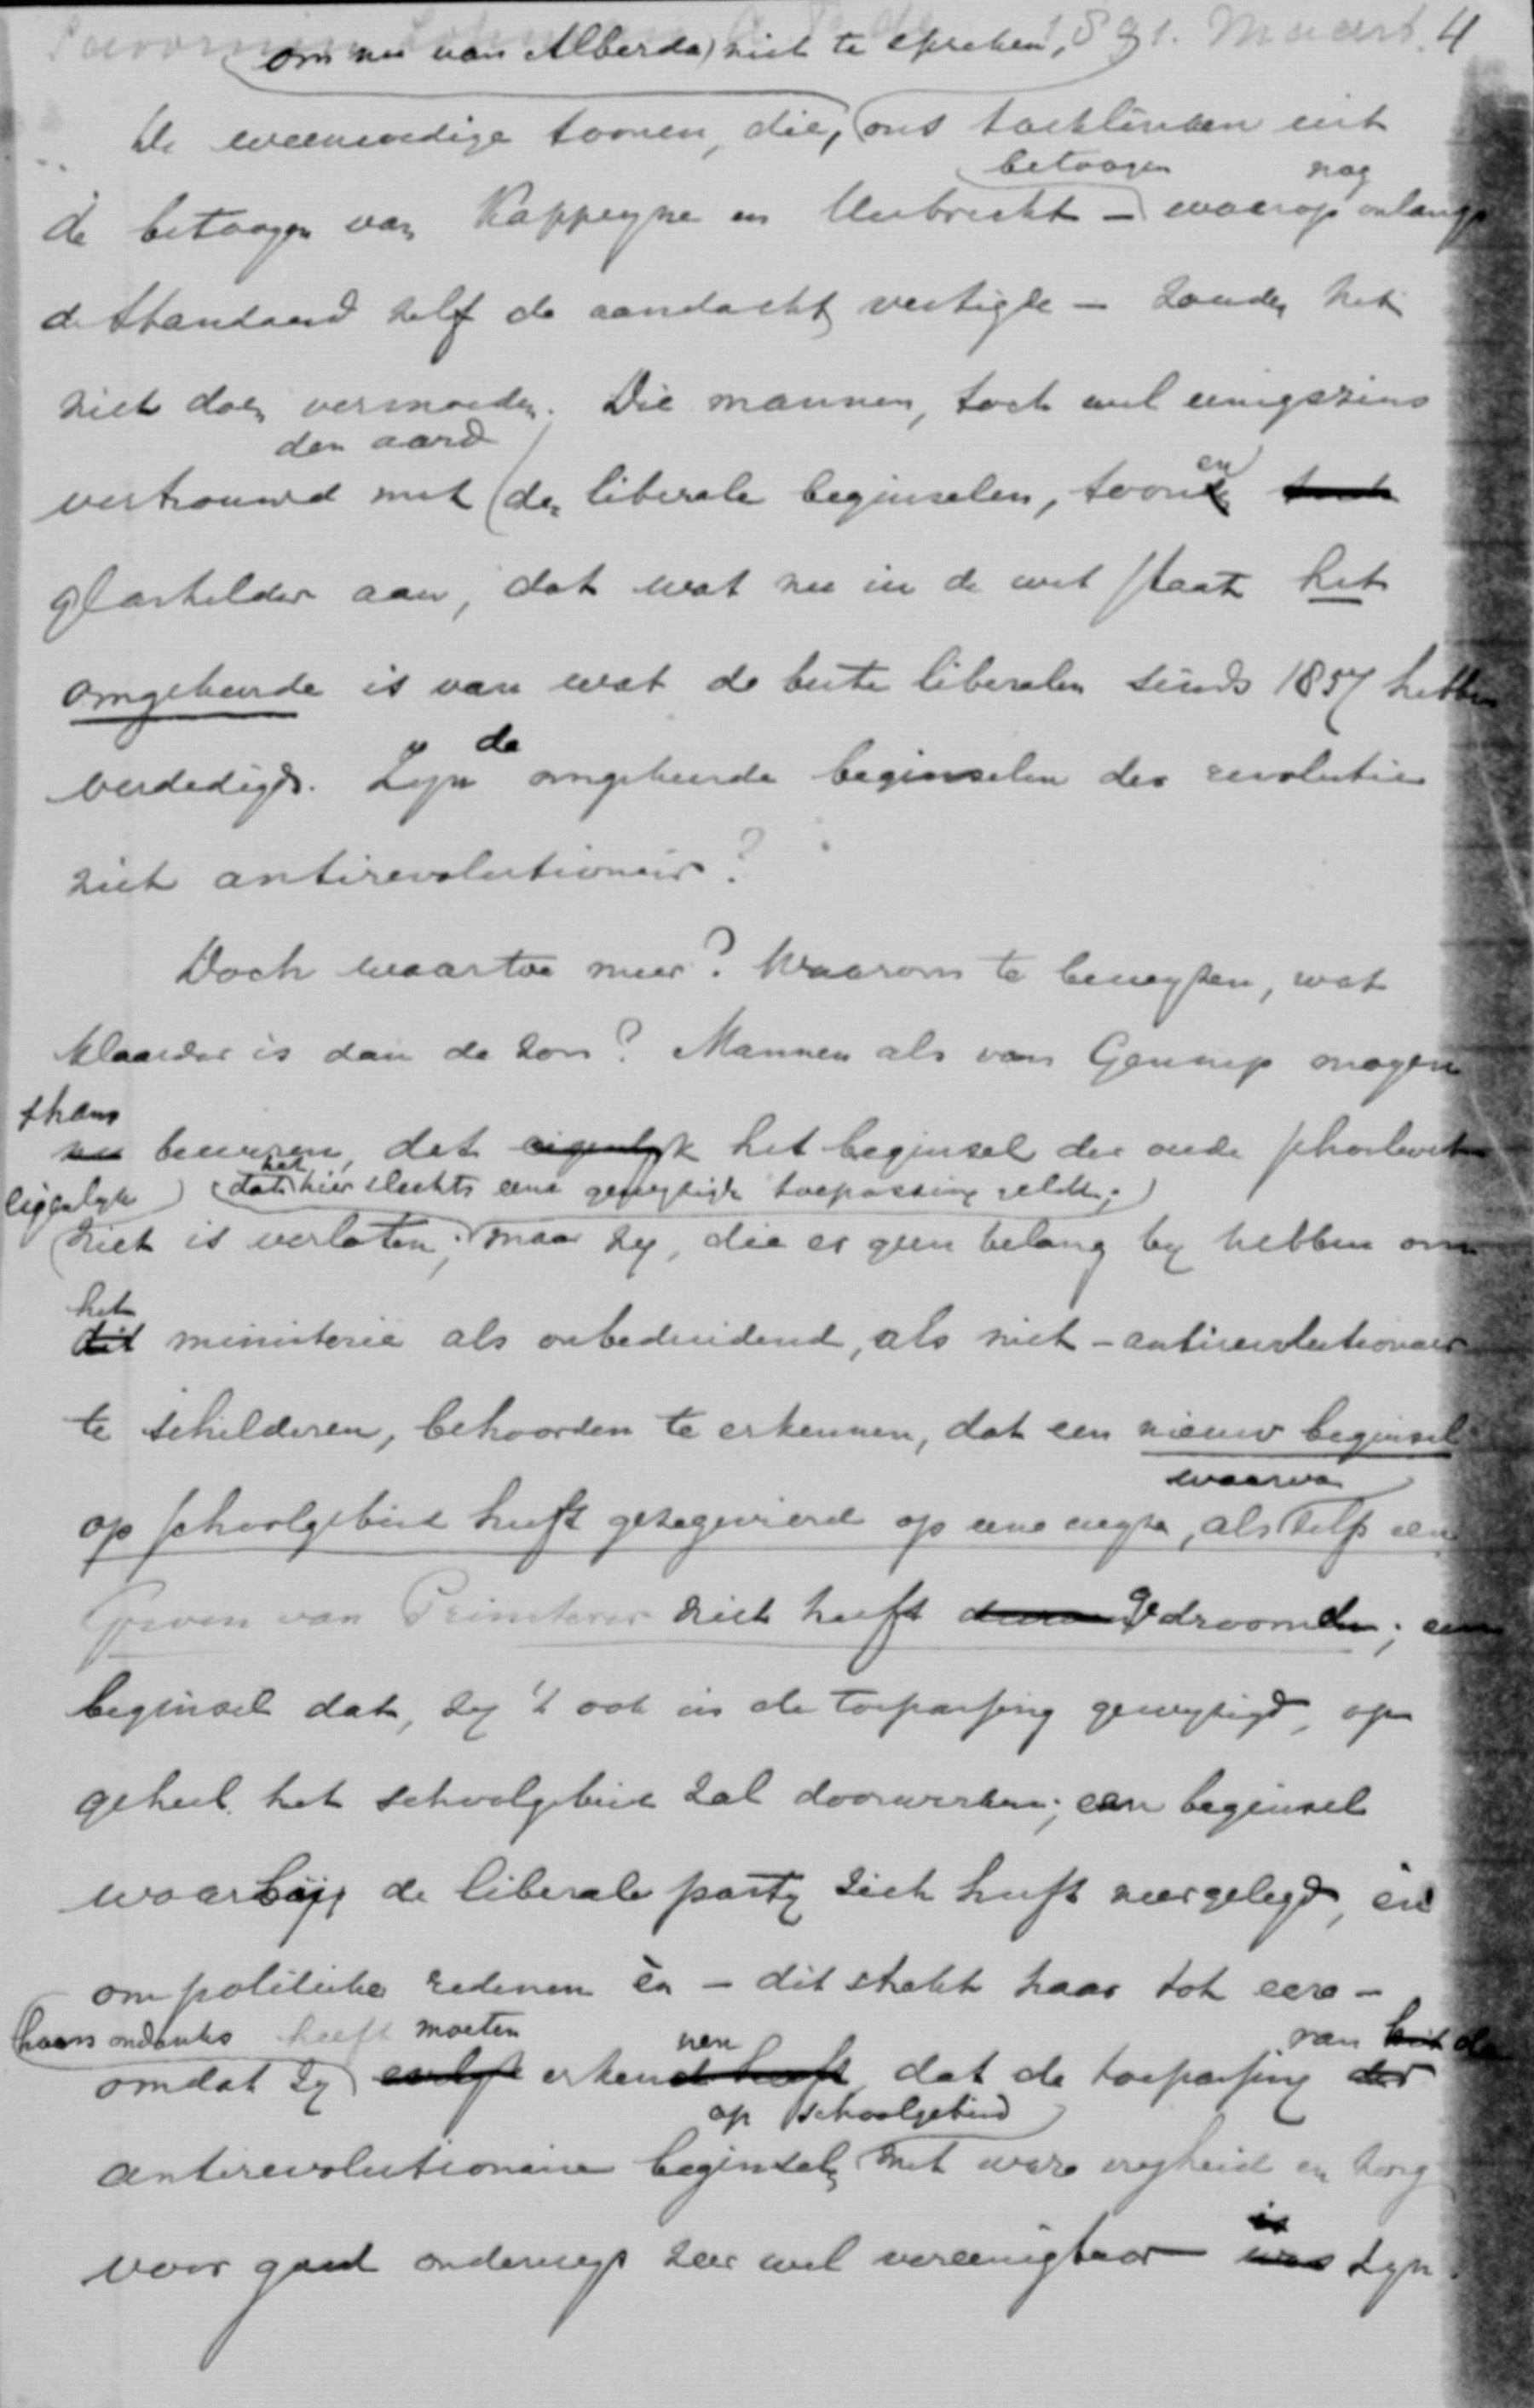 1891. Maart. 4
om nu van Alberda niet te spreken,
De weemoedige toonen, die, ons toeklinken uit
betoogen nog
de betoogen van Kappeyne en Verbrecht - waarop onlangs
de Standaard zelf de aandacht vestigde - zouden het
niet doen vermoeden. Die mannen, toch wel eenigszins
den aard
vertrouwd met der liberale beginselen, toonen
glashelder aan, dat wat nu in de wet staat het
omgekeerde is van wat de beste liberalen sinds 1857 hebben
verdedigd. Zyn de omgekeerde beginselen der revolutie
niet antirevolutionair?
Doch waartoe meer? Waarom te bewyzen, wat
klaarder is dan de zon? Mannen als van Gennep mogen
thans
nu beweren, dat eigenlyk het beginsel der oude schoolwet
eigenlyk dat het hier slechts eene gewyzigde toepassing geldt;
niet is verlaten; maar zy, die er geen belang by hebben om
het
dit ministerie als onbeduidend, als niet-antirevolutionair
te schilderen, behoorden te erkennen, dat een nieuw beginsel
waarvan
op schoolgebied heeft gezegevierd op eene wyze, als zelfs een
Groen van Prinsterer niet heeft gedroomd; een
beginsel dat, zy 't ook in de toepassing gewyzigd, op
geheel het schoolgebied zal doorwerken; een beginsel
waarbij de liberale party zich heeft neergelegd, èn
om politieke redenen èn - dit strekt haar tot eere -
haars ondanks heeft moeten nen van de
omdat zy eerlyk erkend heeft, dat de toepassing der
op schoolgebied
antirevolutionaire beginselen met ware vryheid en zorg
is
voor goed onderwys zeer wel vereenigbaar was zyn.